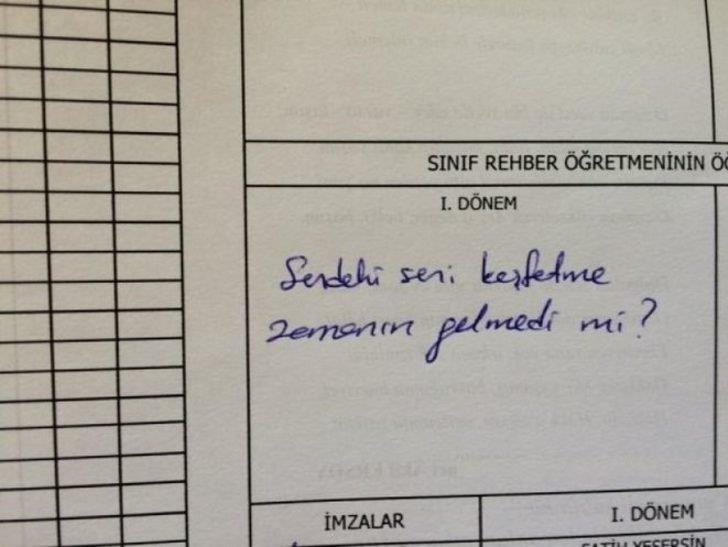 SINIF REHBER ÖĞRETMENİNİN ÖĞ
I. DÖNEM
Sendeki seni keşfetme
zamanın gelmedi mi?
İMZALAR
I. DÖNEM
FATİH YESERSİN